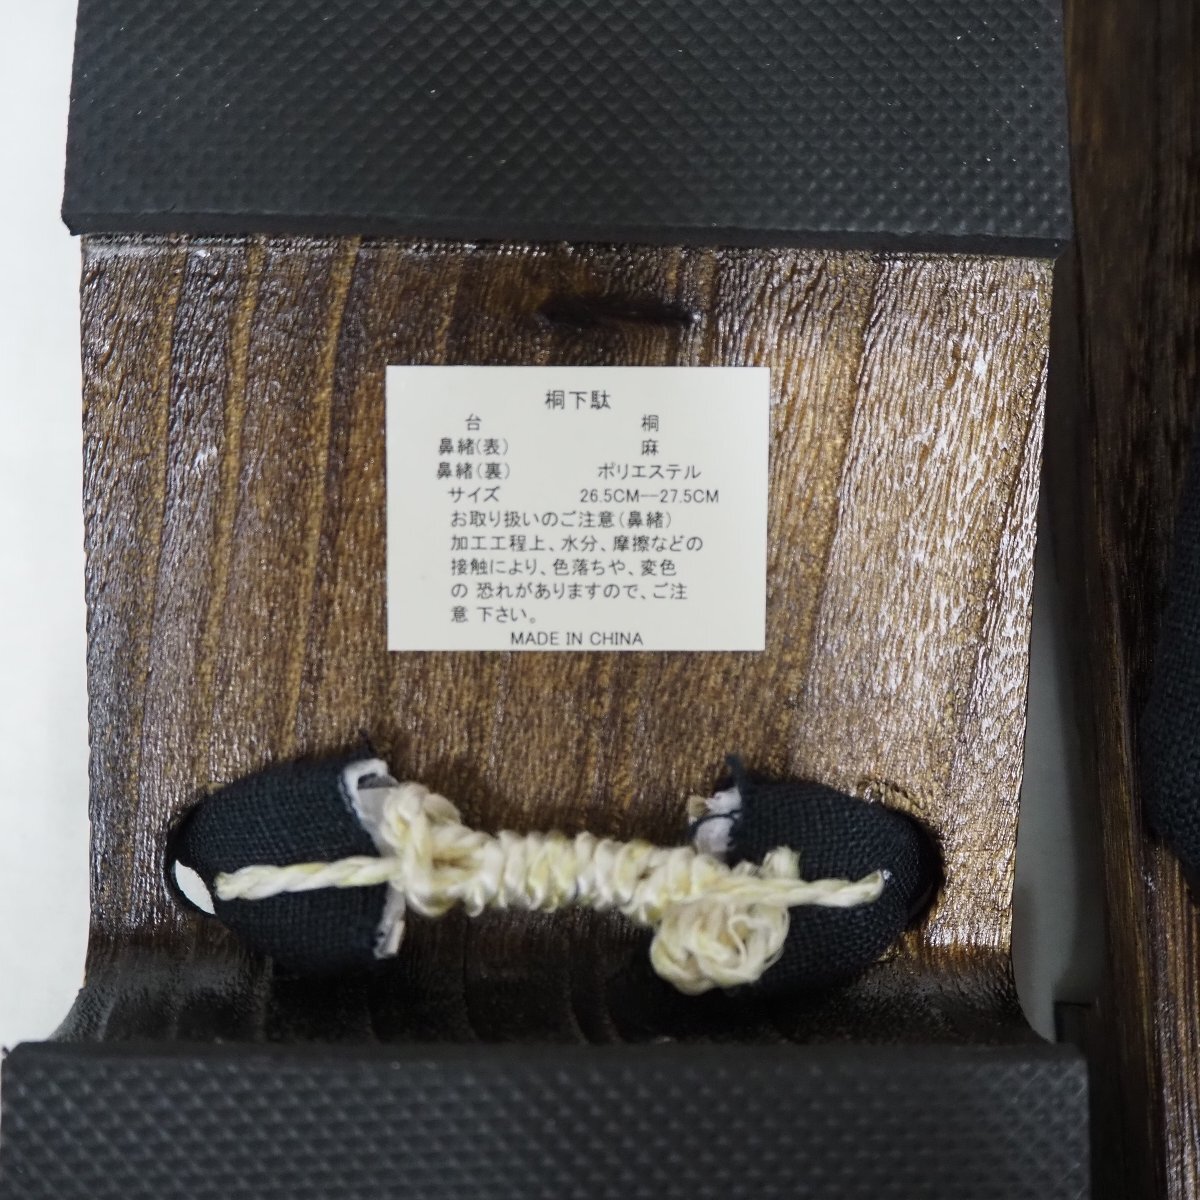 桐下駄
台 桐
鼻緒(表) 麻
鼻緒(裏) ポリエステル
サイズ 26.5CM--27.5CM
お取り扱いのご注意(鼻緒)
加工工程上、水分、摩擦などの
接触により、色落ちや、変色
の 恐れがありますので、ご注
意 下さい。
MADE IN CHINA